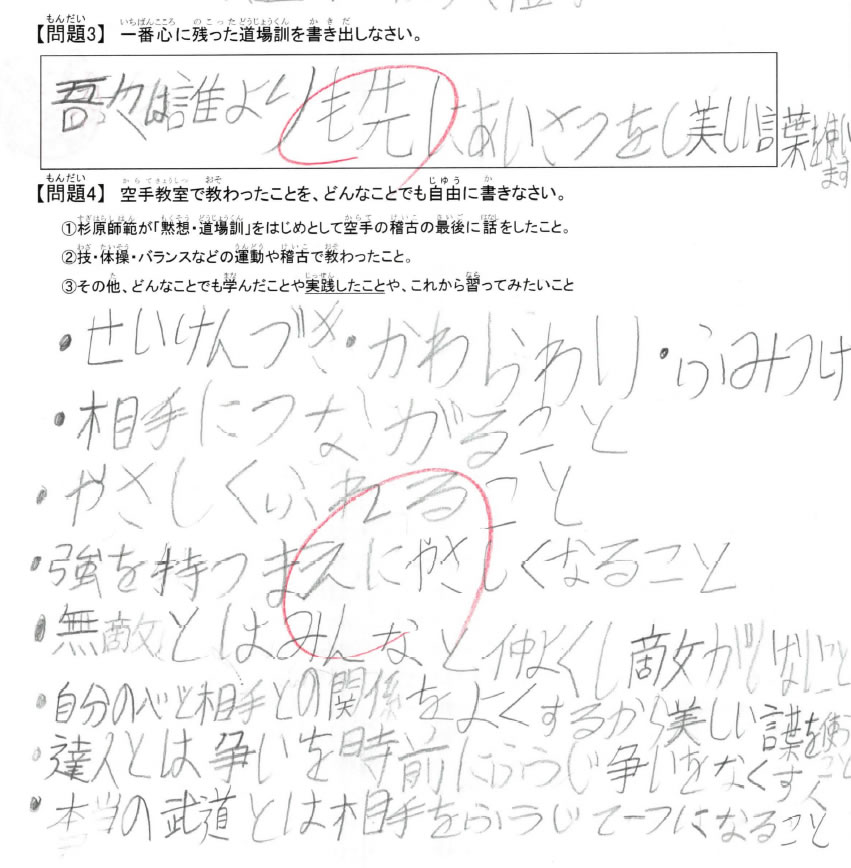 【問題3】 一番心に残った道場訓を書き出しなさい。
吾々は誰よりも先にあいさつをし美しい言葉を使います
【問題4】 空手教室で教わったことを、どんなことでも自由に書きなさい。
①杉原師範が「黙想・道場訓」をはじめとして空手の稽古の最後に話をしたこと。
②技・体操・バランスなどの運動や稽古で教わったこと。
③その他、どんなことでも学んだことや実践したことや、これから習ってみたいこと
・せいけんづき・かわらわり・ふみつけ
・相手につながること
・やさしくふれること
・強を持つまえにやさしくなること
・無敵とはみんなと仲よくし敵がいないこと
・自分の心と相手との関係をよくするから美しい言葉を使うこと
・達人とは争いを時前にふうじ争いをなくす人
・本当の武道とは相手をふうじて一つになること